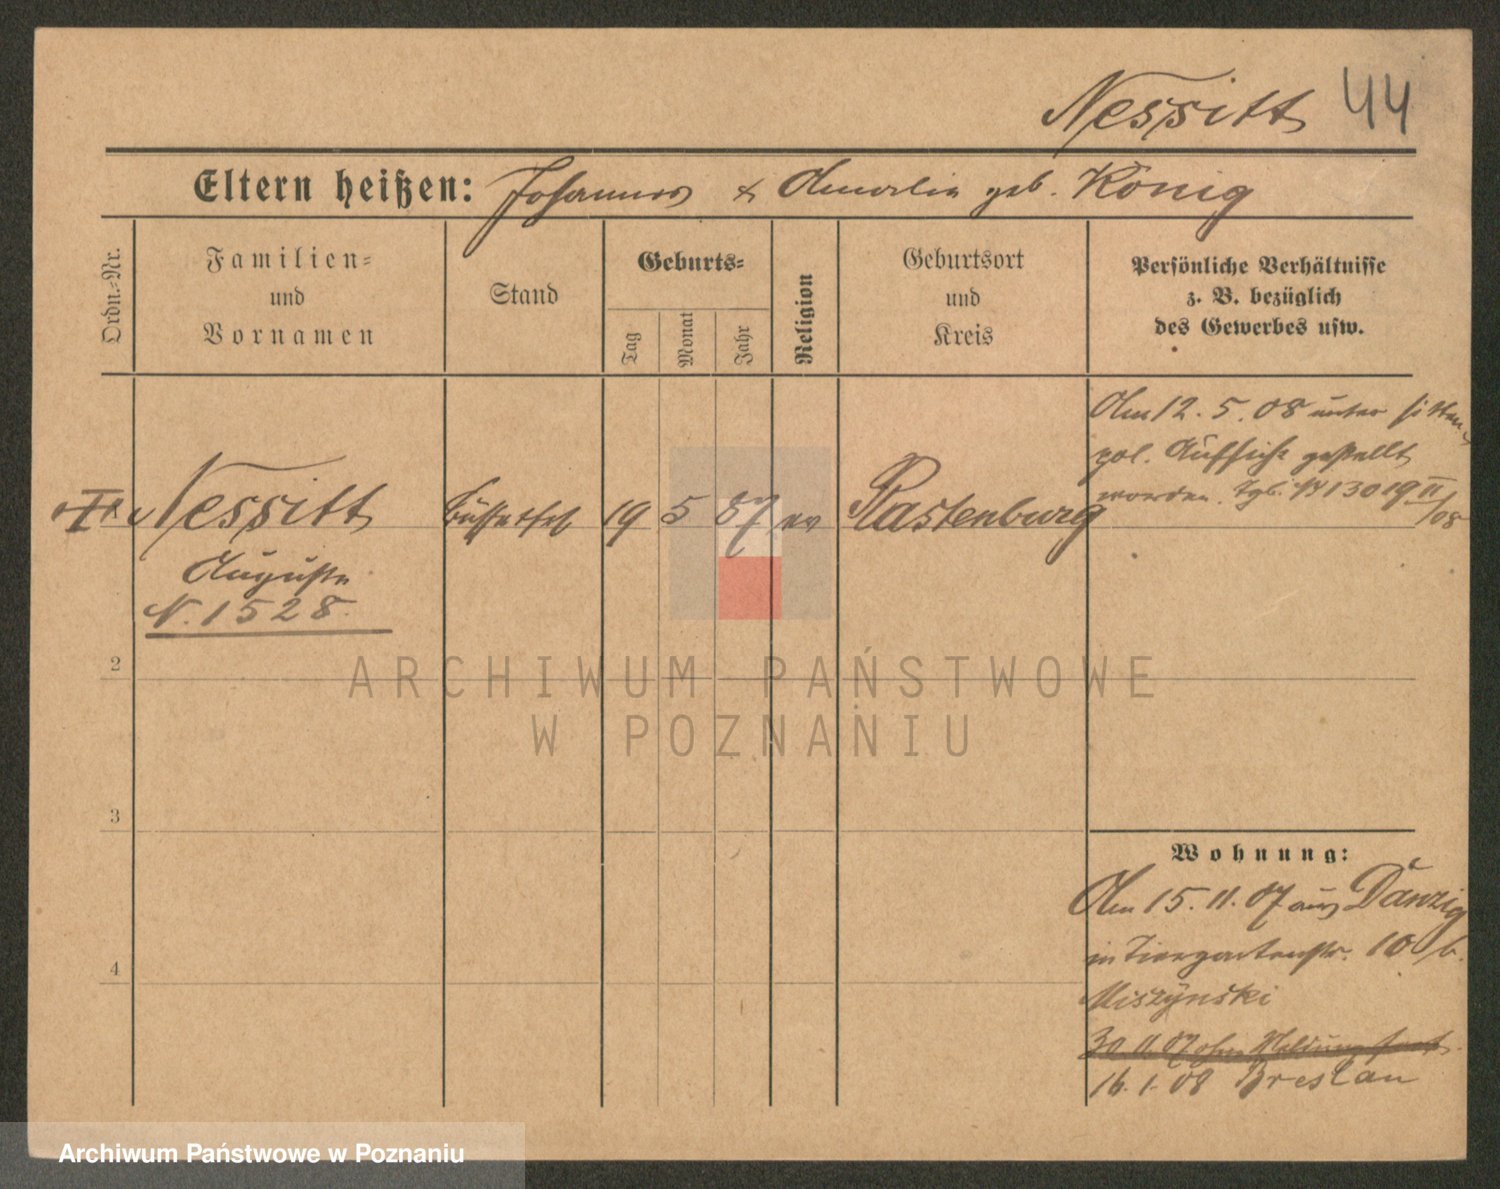 Nessitt 44
Eltern heißen: Johannes & Amalie geb. König
Ordn.-Nr.
Familien=
und
Vornamen
Stand
Geburts=
Tag
Monat
Jahr
Religion
Geburtsort
und
Kreis
Persönliche Verhältnisse
z. B. bezüglich
des Gewerbes usw.
Nessitt
Auguste
N. 1528.
19 5 87 ev
Rastenburg
Am 12. 5. 08 unter sitten
pol. Aufsicht gestellt
worden. Tgb. № 13019 II/08
2
3
4
Wohnung:
Am 15. 11. 07 aus Danzig
in Tiergartenstr. 10 b.
Miszÿnski
30 11. 07 ohne Meldung fort
16. 1. 08 Breslau
ARCHIWUM PAŃSTWOWE
W POZNANIU
Archiwum Państwowe w Poznaniu